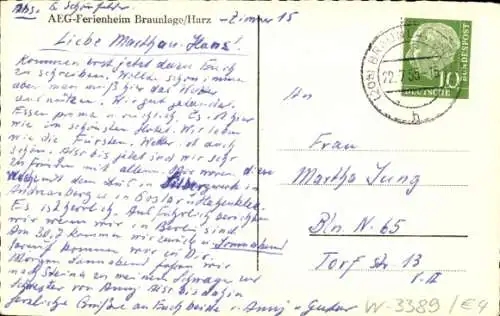 Abs. E. Schönfeldt
AEG-Ferienheim Braunlage/Harz – Zimmer 15
Liebe Martha u. Hans!
Kommen erst jetzt dazu Euch
zu schreiben. Wollte schon immer
aber man muß hier das Wetter
ausnützen. Wir gut gelandet.
Essen prima u. reichlich. Es ist hier
wie im schönsten Hotel. Wir leben
wie die Fürsten. Wetter ist auch
schön. Also bis jetzt sind wir sehr
zufrieden mit allem. Wir waren
mit dem in Silberbergwerk in
Andreasberg u. in Goslar u. Hahnenklee.
Es ist herrlich. Ausführlich berichten
wir wenn wir in Berlin sind
Am 30.7 kommen wir zurück u. Sonnabend
darauf kommen wir
Morgen Sonnabend fahren wir
nach zu meinem Schwager u.
Schwester von Anny. Also bis dahin
herzliche Grüße an Euch beide v. Anny u.
An
Frau
Martha Jung
Bln. N. 65
Torfstr 13
v. II
BRAUNLAGE
22.7.55
h
10
DEUTSCHE
BUNDESPOST
W-3389/E4